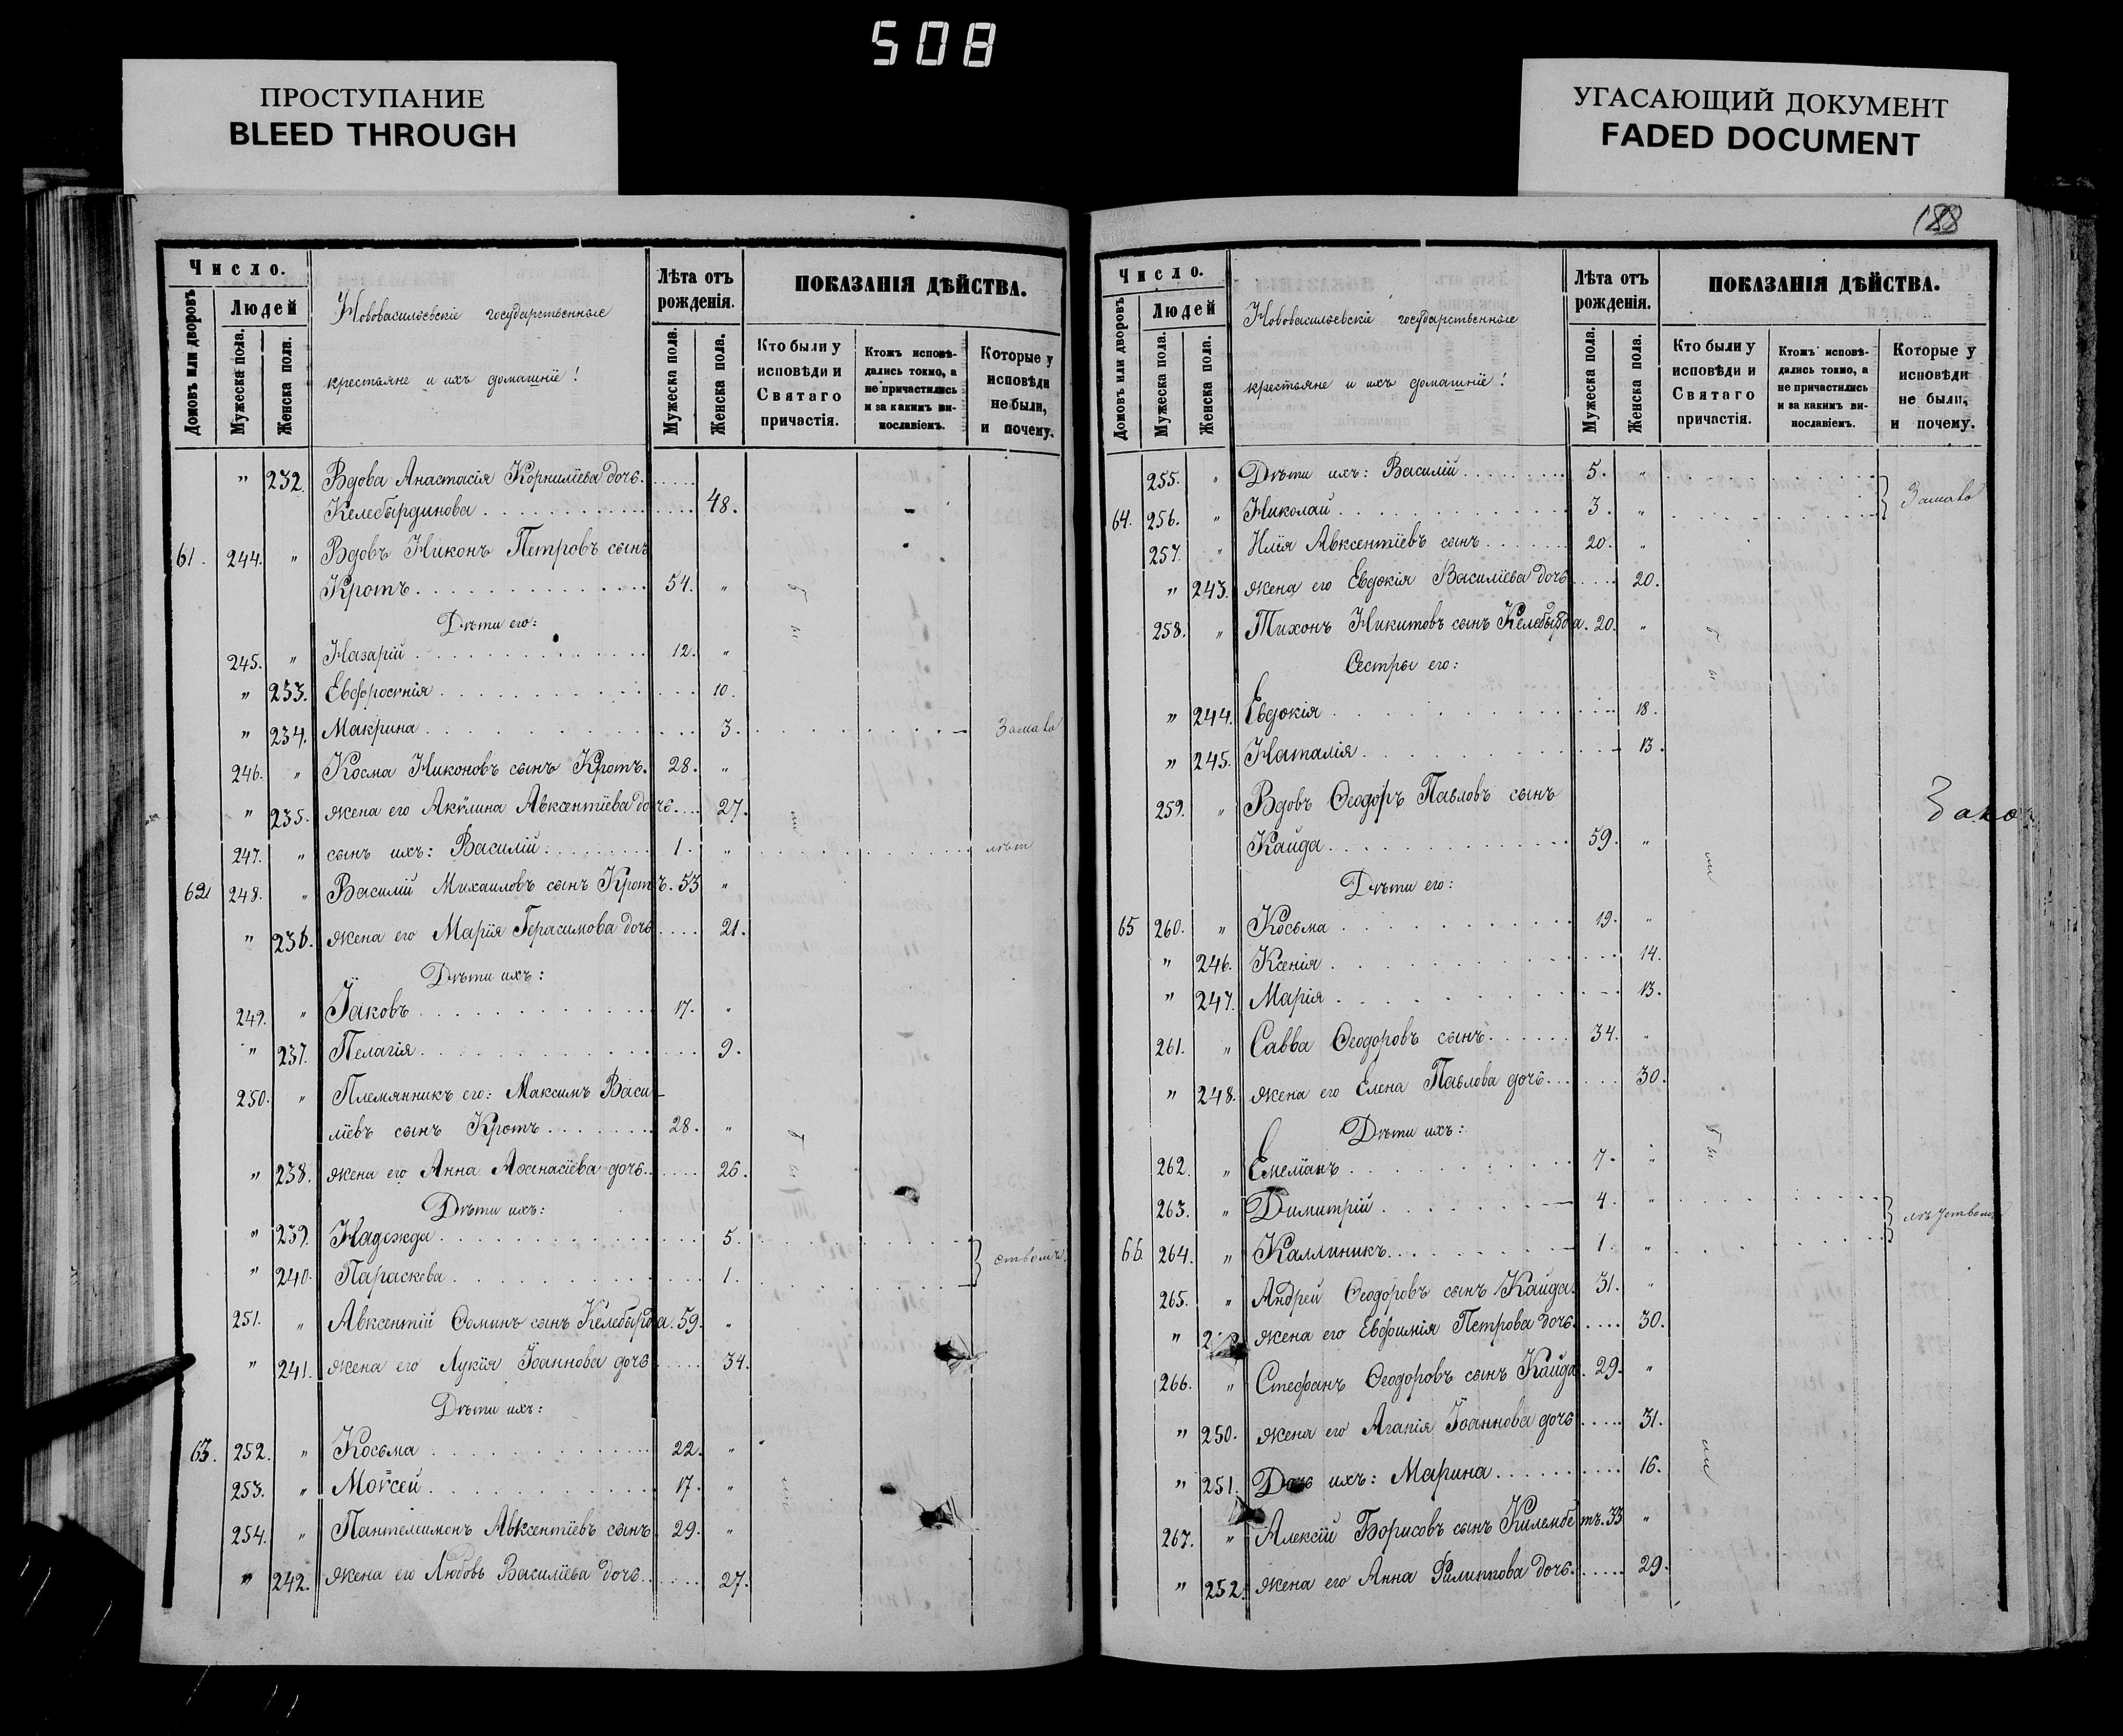 508
ПРОСТУПАНИЕ
BLEED THROUGH
УГАСАЮЩИЙ ДОКУМЕНТ
FADED DOCUMENT
Число.
Домовъ или дворовъ
Людей
Мужеска пола.
Женска пола.
Нововасильевскіе государственные
крестьяне и ихъ домашніе!
Лѣта отъ
рожденія.
Мужеска пола.
Женска пола.
ПОКАЗАНІЯ ДѢЙСТВА.
Кто были у
исповѣди и
Святаго
причастія.
Ктожъ исповѣ-
дались токмо, а
не причастились
и за какимъ ви-
нословіемъ.
Которые у
исповѣди
не были,
и почему.
" 232. Вдова Анастасія Корниліева дочь.
Келебырдинова 48.
61. 244. " Вдовъ Никонъ Петровъ сынъ
Кротъ 54. "
Дѣти его:
245. " Назарій 12. "
" 233. Евфросинія 10.
" 234. Макрина 3. Замало
246. " Косма Никоновъ сынъ Кротъ. 28. "
" 235. жена его Акилина Авксентіева дочь 27.
247. " сынъ ихъ: Василій 1. " лѣт
62 248. " Василій Михаиловъ сынъ Кротъ. 53 "
" 236. жена его Марія Герасимова дочь 21.
Дѣти ихъ:
249. " Іаковъ 17. "
" 237. Пелагія 9.
250. " Племянникъ его: Максимъ Васи-
ліевъ сынъ Кротъ 28. "
" 238. жена его Анна Аѳанасіева дочь 26.
Дѣти ихъ:
" 239. Надежда 5.
" 240. Параскева 1. ствомъ.
251. " Авксентій Ѳоминъ сынъ Келебырда. 59. "
" 241. жена его Лукія Іоаннова дочь 34.
Дѣти ихъ:
63. 252. " Косьма 22. "
253. " Моѵсей 17. "
254. " Пантелеимонъ Авксентіевъ сынъ 29. "
" 242. жена его Любовь Василіева дочь 27.
188
Число.
Домовъ или дворовъ
Людей
Мужеска пола.
Женска пола.
Нововасильевскіе государственные
крестьяне и ихъ домашніе!
Лѣта отъ
рожденія.
Мужеска пола.
Женска пола.
ПОКАЗАНІЯ ДѢЙСТВА.
Кто были у
исповѣди и
Святаго
причастія.
Ктожъ исповѣ-
дались токмо, а
не причастились
и за какимъ ви-
нословіемъ.
Которые у
исповѣди
не были,
и почему.
255. " Дѣти ихъ: Василій 5. "
64. 256. " Николай 3. " Замало
257. " Илія Авксентіевъ сынъ 20. "
" 243. жена его Евдокія Василіева дочь 20.
258. " Тихонъ Никитовъ сынъ Келебырда. 20. "
Сестры его:
" 244. Евдокія 18.
" 245. Наталія 13.
259. " Вдовъ Ѳеодоръ Павловъ сынъ
Кайда 59. "
Дѣти его:
65 260. " Косьма 19. "
" 246. Ксенія 14.
" 247. Марія 13.
261. " Савва Ѳеодоровъ сынъ 34. "
" 248. жена его Елена Павлова дочь 30.
Дѣти ихъ:
262. " Емеліанъ 7. "
263. " Димитрій 4. "
66. 264. " Каллиникъ 1. "
265. " Андрей Ѳеодоровъ сынъ Кайда. 31. "
" жена его Евфимія Петрова дочь 30.
266. " Стефанъ Ѳеодоровъ сынъ Кайда. 29. "
" 250. жена его Агапія Іоаннова дочь 31.
" 251. Дочь ихъ: Марина 16.
267. " Алексій Борисовъ сынъ 33 "
" 252. жена его Анна Филиппова дочь 29.